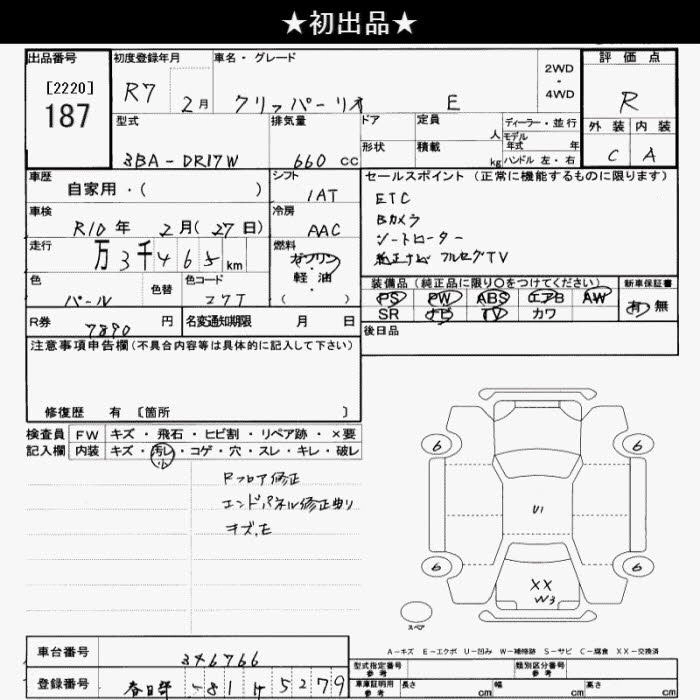 ★初出品★
出品番号 [2220] 187
初度登録年月 R7 2月
車名・グレード クリッパーリオ E
2WD・4WD
評価点 R
外装 内装
C A
型式 3BA-DR17W
排気量 660 cc
ドア 定員 人
形状 積載 kg
ディーラー・並行
モデル年式 年
ハンドル 左・右
車歴 自家用・( )
シフト 1AT
車検 R10年 2月(27日)
冷房 AAC
走行 万3千465km
燃料 ガソリン・軽油 ( )
色 パール
色替
色コード
R券 7890円
名変通知期限 月 日
セールスポイント(正常に機能するものに限ります)
ETC
Bカメラ
シートヒーター
純正ナビ フルセグTV
装備品(純正品に限り○をつけてください)
PS PW ABS エアB AW
SR ナビ TV カワ
新車保証書
有 無
後日品
注意事項申告欄(不具合内容等は具体的に記入して下さい)
修復歴 有 〔箇所 〕
検査員記入欄
FW キズ・飛石・ヒビ割・リペア跡・×要
内装 キズ・汚レ・コゲ・穴・スレ・キレ・破レ
小
Rフロア修正
エンドパネル修正曲り
キズ,E
6 6
U1
6 6
XX
W3
スペア
A-キズ E-エクボ U-凹み W-補修跡 S-サビ C-腐食 XX-交換済
車台番号 346766
登録番号 春日部 581 ち 5279
型式指定番号 参考
類別区分番号 参考
車庫証明用 参考 長さ cm 幅 cm 高さ cm